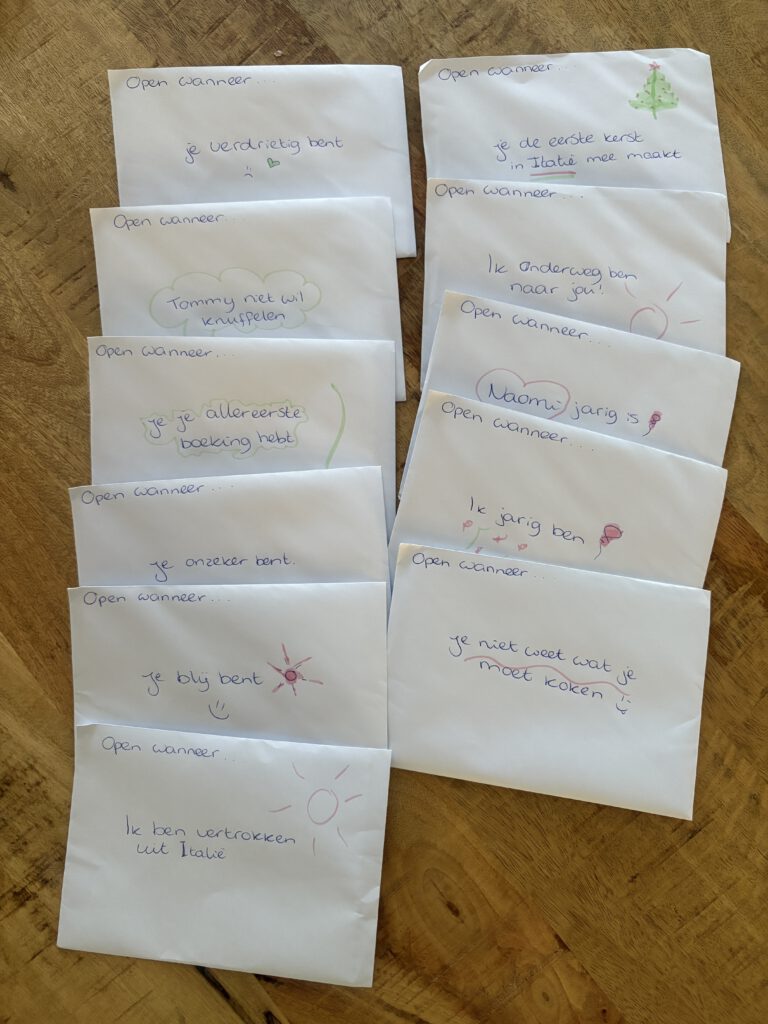 Open wanneer...
je verdrietig bent
Open wanneer...
Tommy niet wil
knuffelen
Open wanneer...
je je allereerste
boeking hebt
Open wanneer....
je onzeker bent.
Open wanneer...
je blij bent
Open wanneer...
Ik ben vertrokken
uit Italië
Open wanneer...
je de eerste kerst
in Italië mee maakt
Open wanneer...
Ik onderweg ben
naar jou!
Open wanneer...
Naomi jarig is
Open wanneer...
Ik jarig ben
Open wanneer...
je niet weet wat je
moet koken